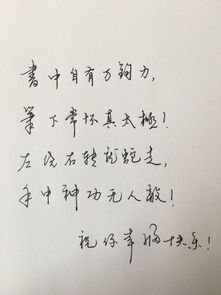 書中自有万鈞力,
筆下常怀真太極!
左旋右转龍蛇走,
手中神功无人敵!
祝你幸福快乐!